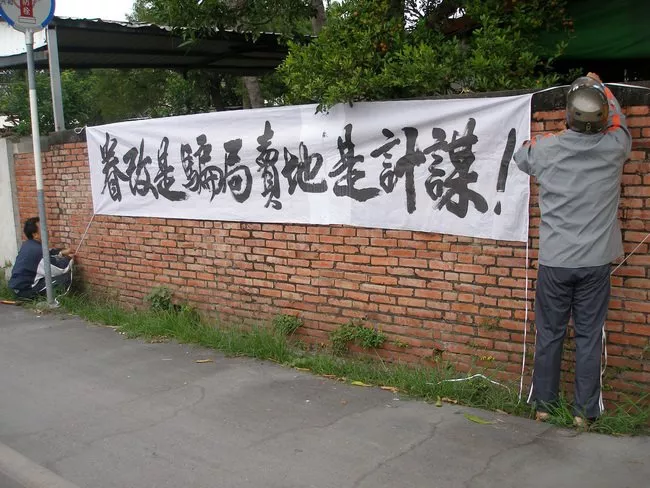 眷改是騙局賣地是計謀！